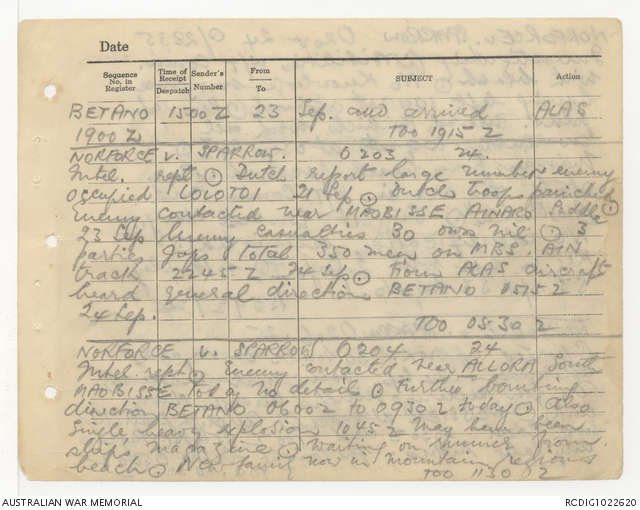 Date
Sequence No. in Register Time of Receipt Despatch Sender's Number From To SUBJECT Action
BETANO 1500 Z 23 Sep. and arrived ALAS
1900 Z TOO 1915 Z
NORFORCE v. SPARROW. O 203 24.
Intel. rept ⊙ Dutch report large number enemy
occupied LOLOTOI 21 Sep ⊙ Dutch troops panicked
Enemy contacted near MAOBISSE AINARO Saddle
23 Sep Enemy casualties 30 own nil ⊙ 3
parties Japs total 350 men on MBS. AIN
track 2245 Z 24 Sep ⊙ From ALAS aircraft
heard general direction BETANO 0515 Z
24 Sep.
TOO 0530 Z
NORFORCE v. SPARROW O 204 24
Intel. rept ⊙ Enemy contacted near ALLORA South
MAOBISSE Today no details ⊙ Further bombing
direction BETANO 0600 Z to 0930 Z today ⊙ Also
single heavy explosion 1045 Z may have been
ship's magazine ⊙ Waiting on runner from
beach ⊙ now in mountain regions
TOO 1130 Z
AUSTRALIAN WAR MEMORIAL
RCDIG1022620